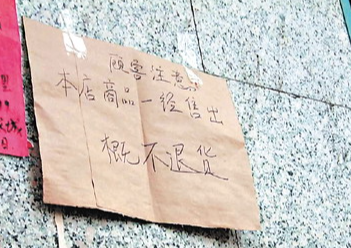 顾客注意
本店商品一经售出
概不退货